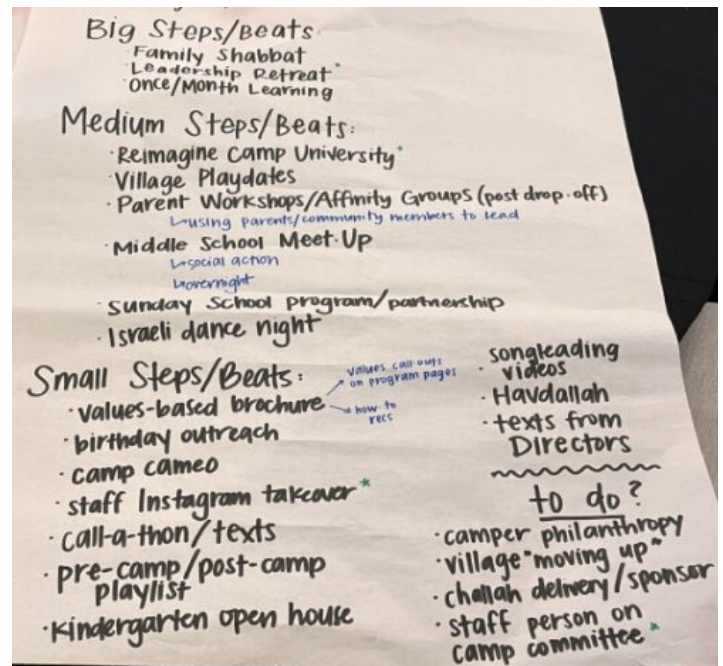 Big Steps/Beats
· Family Shabbat
· Leadership Retreat*
· Once/Month Learning
Medium Steps/Beats:
· Reimagine Camp University*
· Village Playdates
· Parent Workshops/Affinity Groups (post drop-off)
↳using parents/community members to lead
· Middle School Meet-Up
↳social action
↳overnight
· Sunday School program/partnership
· Israeli dance night
Small Steps/Beats:
· values-based brochure
→ values call outs
on program pages
→ how-to
recs
· birthday outreach
· camp cameo
· staff Instagram takeover*
· call-a-thon/texts
· pre-camp/post-camp
playlist
· Kindergarten open house
· songleading
videos
· Havdallah
· texts from
Directors
to do?
· camper philanthropy
· village "moving up"
· challah delivery/sponsor
· staff person on
camp committee*